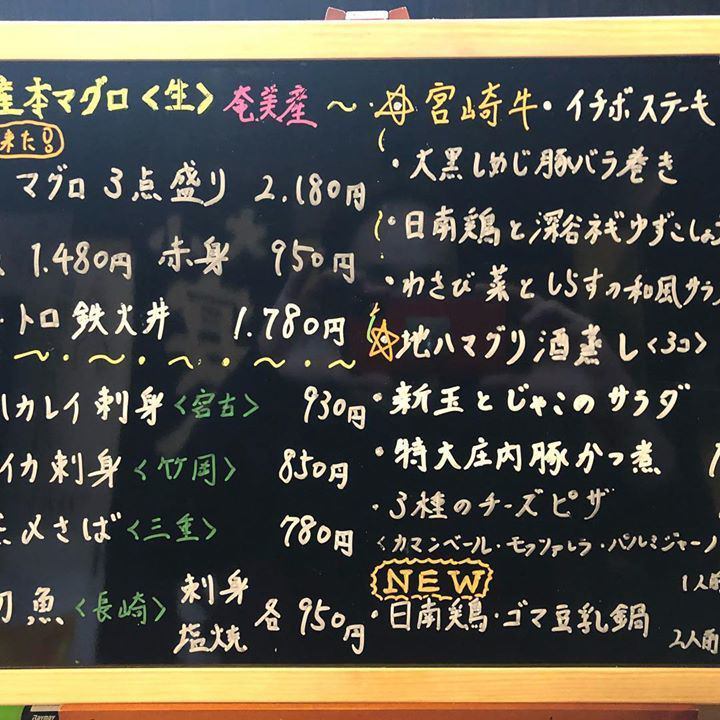 産本マグロ〈生〉奄美産 〜
来た!!
マグロ 3点盛り 2.180円
1.480円 赤身 950円
トロ鉄火丼 1.780円
カレイ刺身〈宮古〉 930円
イカ刺身〈竹岡〉 850円
〆さば〈三重〉 780円
魚〈長崎〉 刺身 塩焼 各950円
☆宮崎牛・イチボステーキ
・大黒しめじ豚バラ巻き
・日南鶏と深谷ネギゆずこしょう
・わさび菜としらすの和風サラ
☆地ハマグリ酒蒸し〈3コ〉
・新玉とじゃこのサラダ
・特大庄内豚かつ煮
・3種のチーズピザ
〈カマンベール・モッツァレラ・パルミジャーノ
NEW
1人前
・日南鶏・ゴマ豆乳鍋 2人前
Raymay